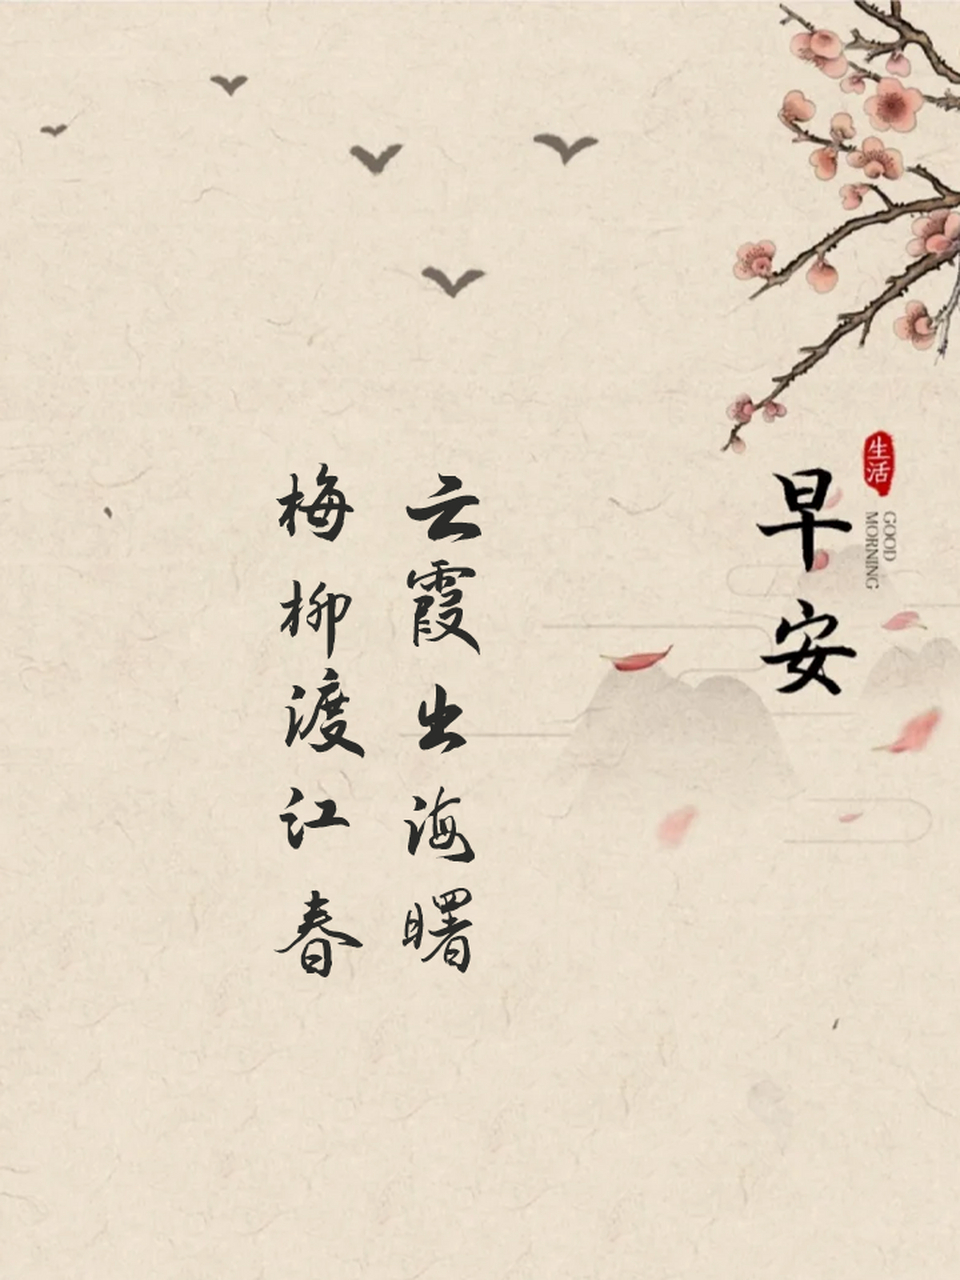 生活
GOOD
MORNING
早安
云霞出海曙
梅柳渡江春